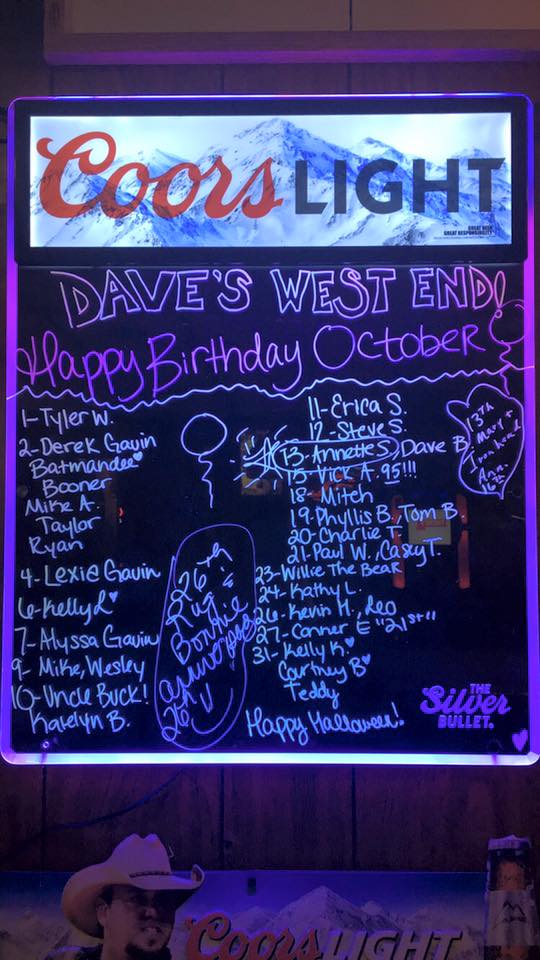 Coors LIGHT
GREAT BEER
GREAT RESPONSIBILITY
DAVE'S WEST END!
Happy Birthday October
1-Tyler W.
2-Derek Gavin
Batmandee♥
Booner
Mike A.
Taylor
Ryan
4-Lexie Gavin
6-Kelly L♥
7-Alyssa Gavin
9-Mike, Wesley
10-Uncle Buck!
Katelyn B.
11-Erica S.
12-Steve S.
13-Annette S. Dave B.
15-Vick A. 95!!!
18-Mitch
19-Phyllis B., Tom B.
20-Charlie T.
21-Paul W., Casey T.
23-Willie The Bear
24-Kathy L.
26-Kevin H., Leo
27-Conner E "21st"
31-Kelly K♥
Courtney B♥
Teddy
Happy Halloween!
13th
Mary +
Iron head
Ann.
26th
Rug
Bonnie
anniversary
26
THE
Silver
BULLET.
Coors LIGHT